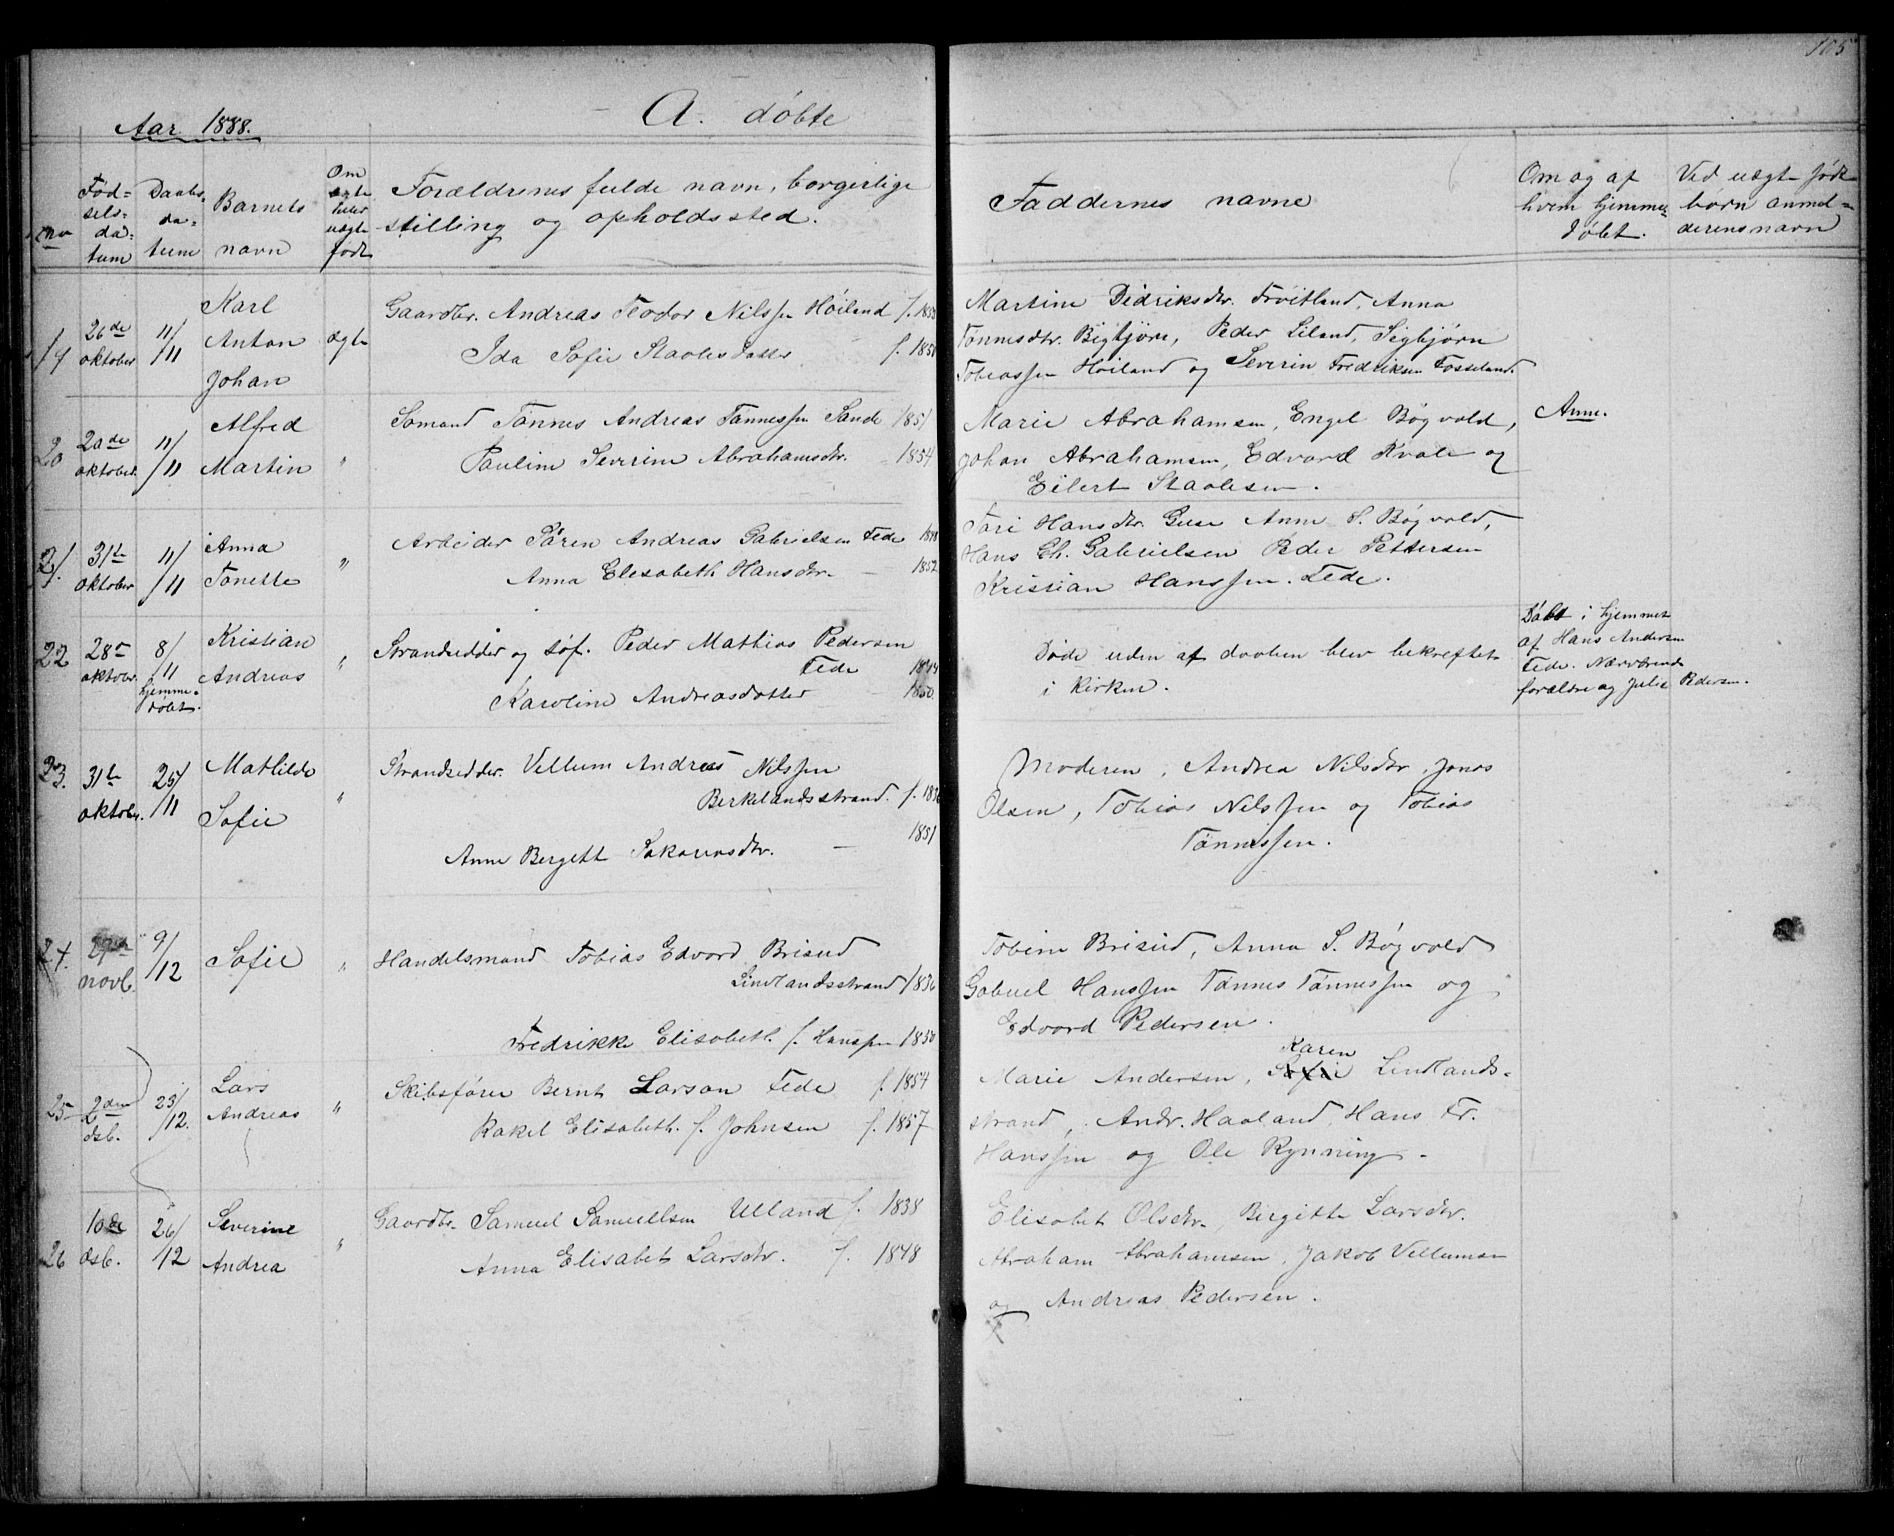 105
A. døbte
Aar 1888.
no
Fød-
sels-
da-
tum
Daabs-
da-
tum
Barnets
navn
Om
ægte
eller
uægte
født
Forældrenes fulde navn, borgerlige
stilling og opholdssted.
Faddernes navne
Om og af
hvem hjemme-
døbt.
Ved uægte født
børn anmel-
derens navn
19 26de oktober 11/11 Karl Anton Johan ægte
Gaardbr. Andreas Teodor Nilssen Høiland f. 1853
Ida Sofie Staalesdatter f. 1850
Martine Didriksdtr. Frøitland, Anna
Tønnesdtr. Bigbjøre, Peder Liland, Sigbjørn
Tobiassen Høiland og Severin Fredriksen Fosseland.
20 20de oktober 11/11 Alfred Martin "
Sømand Tønnes Andreas Tønnessen Sande 1851
Pauline Severine Abrahamsdtr. 1854
Marie Abrahamsen, Engel Bøgvold,
Johan Abrahamsen, Edvard Kvale og
Eilert Staalesen.
Anne.
21. 31te oktober 11/11 Anna Tonette "
Arbeider Søren Andreas Gabrielsen Fede 1848
Anna Elisabeth Hansdtr. — 1852
Tori Hansdtr. Guse Anne S. Bøgvold,
Hans Ch. Gabrielsen Peder Pettersen
Kristian Hanssen. Fede.
22 28de oktober 8/11 hjemme-døbt. Kristian Andreas "
Strandsidder og søf. Peder Mathias Pedersen
Fede
Karoline Andreasdatter — 1850.
Døde uden at daaben blev bekreftet
i kirken.
Døbt i hjemmet
af Hans Andersen
Fede. Nærværende
forældre og Julie Pedersen.
23. 31te oktober. 25/11 Mathilde Sofie "
Strandsidder. Vellum Andreas Nilssen
Berkelandsstrand. f. 1836
Anne Bergette Sakariasdtr. — 1851
Moderen, Andrea Nilsdtr, Jonas
Olsen, Tobias Nilssen og Tobias
Tønnessen.
24. 29de novb. 9/12 Sofie "
Handelsmand Tobias Edvard Brisud
Lindlandsstrand 1836
Fredrikke Elisabeth f. Hanssen 1850
Tobine Brisud, Anna S. Bøgvold
Gabriel Hanssen Tønnes Tønnessen og
Edvard Pedersen.
25 2den dsb. 23/12. Lars Andreas "
Skibsfører Bernt Larsen Fede f. 1854
Rakel Elisabeth. f. Johnsen f. 1857
Karen
Marie Andersen, Sofie Lindlands-
strand, Andr. Haaland, Hans Fr.
Hanssen og Ole Rynning.
26 10de dsb. 26/12 Severine Andrea "
Gaardbr. Samuel Samuelsen Ulland f. 1838
Anna Elisabet Larsdtr. f. 1848
Elisabet Olsdtr, Birgitte Larsdtr.
Abraham Abrahamsen, Jakob Vellumsen
og Andreas Pedersen.